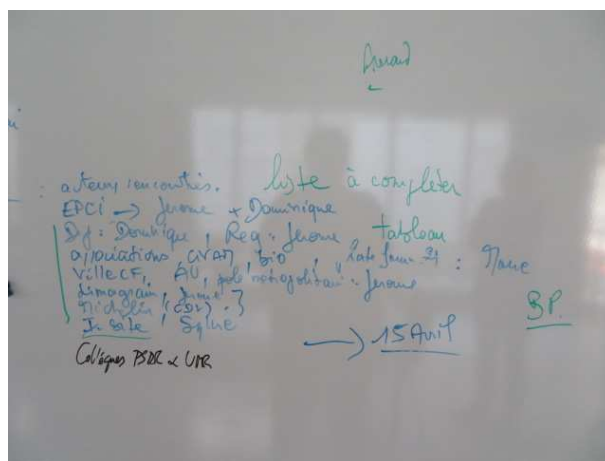 : acteurs rencontrés. liste à compléter
EPCI → Jerome + Dominique
Dominique, Reg : Jerome tableau
associations, CIVAM, bio, : Marie
Ville CF, AU, pole métropolitain : Jerome
Limagrain,
Michelin
Sylvie
→ 15 Avril
BP.
Collègues PSDR & UMR